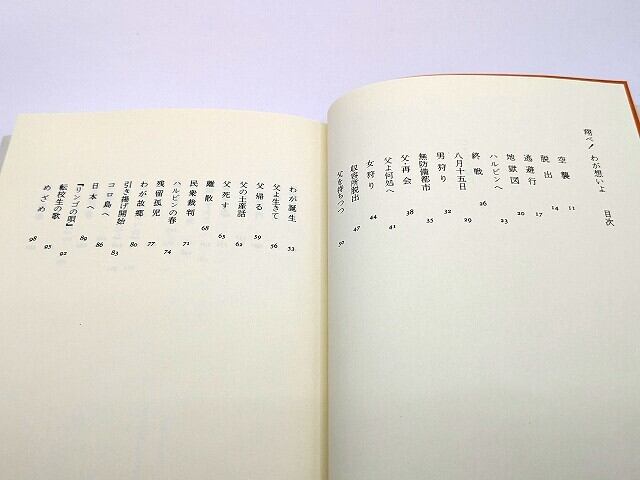 翔べ！わが想いよ　目次
空襲 11
脱出 14
逃避行 17
地獄図 20
ハルビンへ 23
終戦 26
八月十五日 29
男狩り 32
無防備都市 35
父・再会 38
父よ何処へ 41
女狩り 44
収容所脱出 47
父を待ちつつ 50
わが誕生 53
父よ生きて 56
父帰る 59
父の土産話 62
父死す 65
離散 68
民衆裁判 71
ハルビンの春 74
残留孤児 77
わが故郷 80
引き揚げ開始 83
コロ島へ 86
日本へ 89
『リンゴの唄』 92
転校生の歌 95
めざめ 98